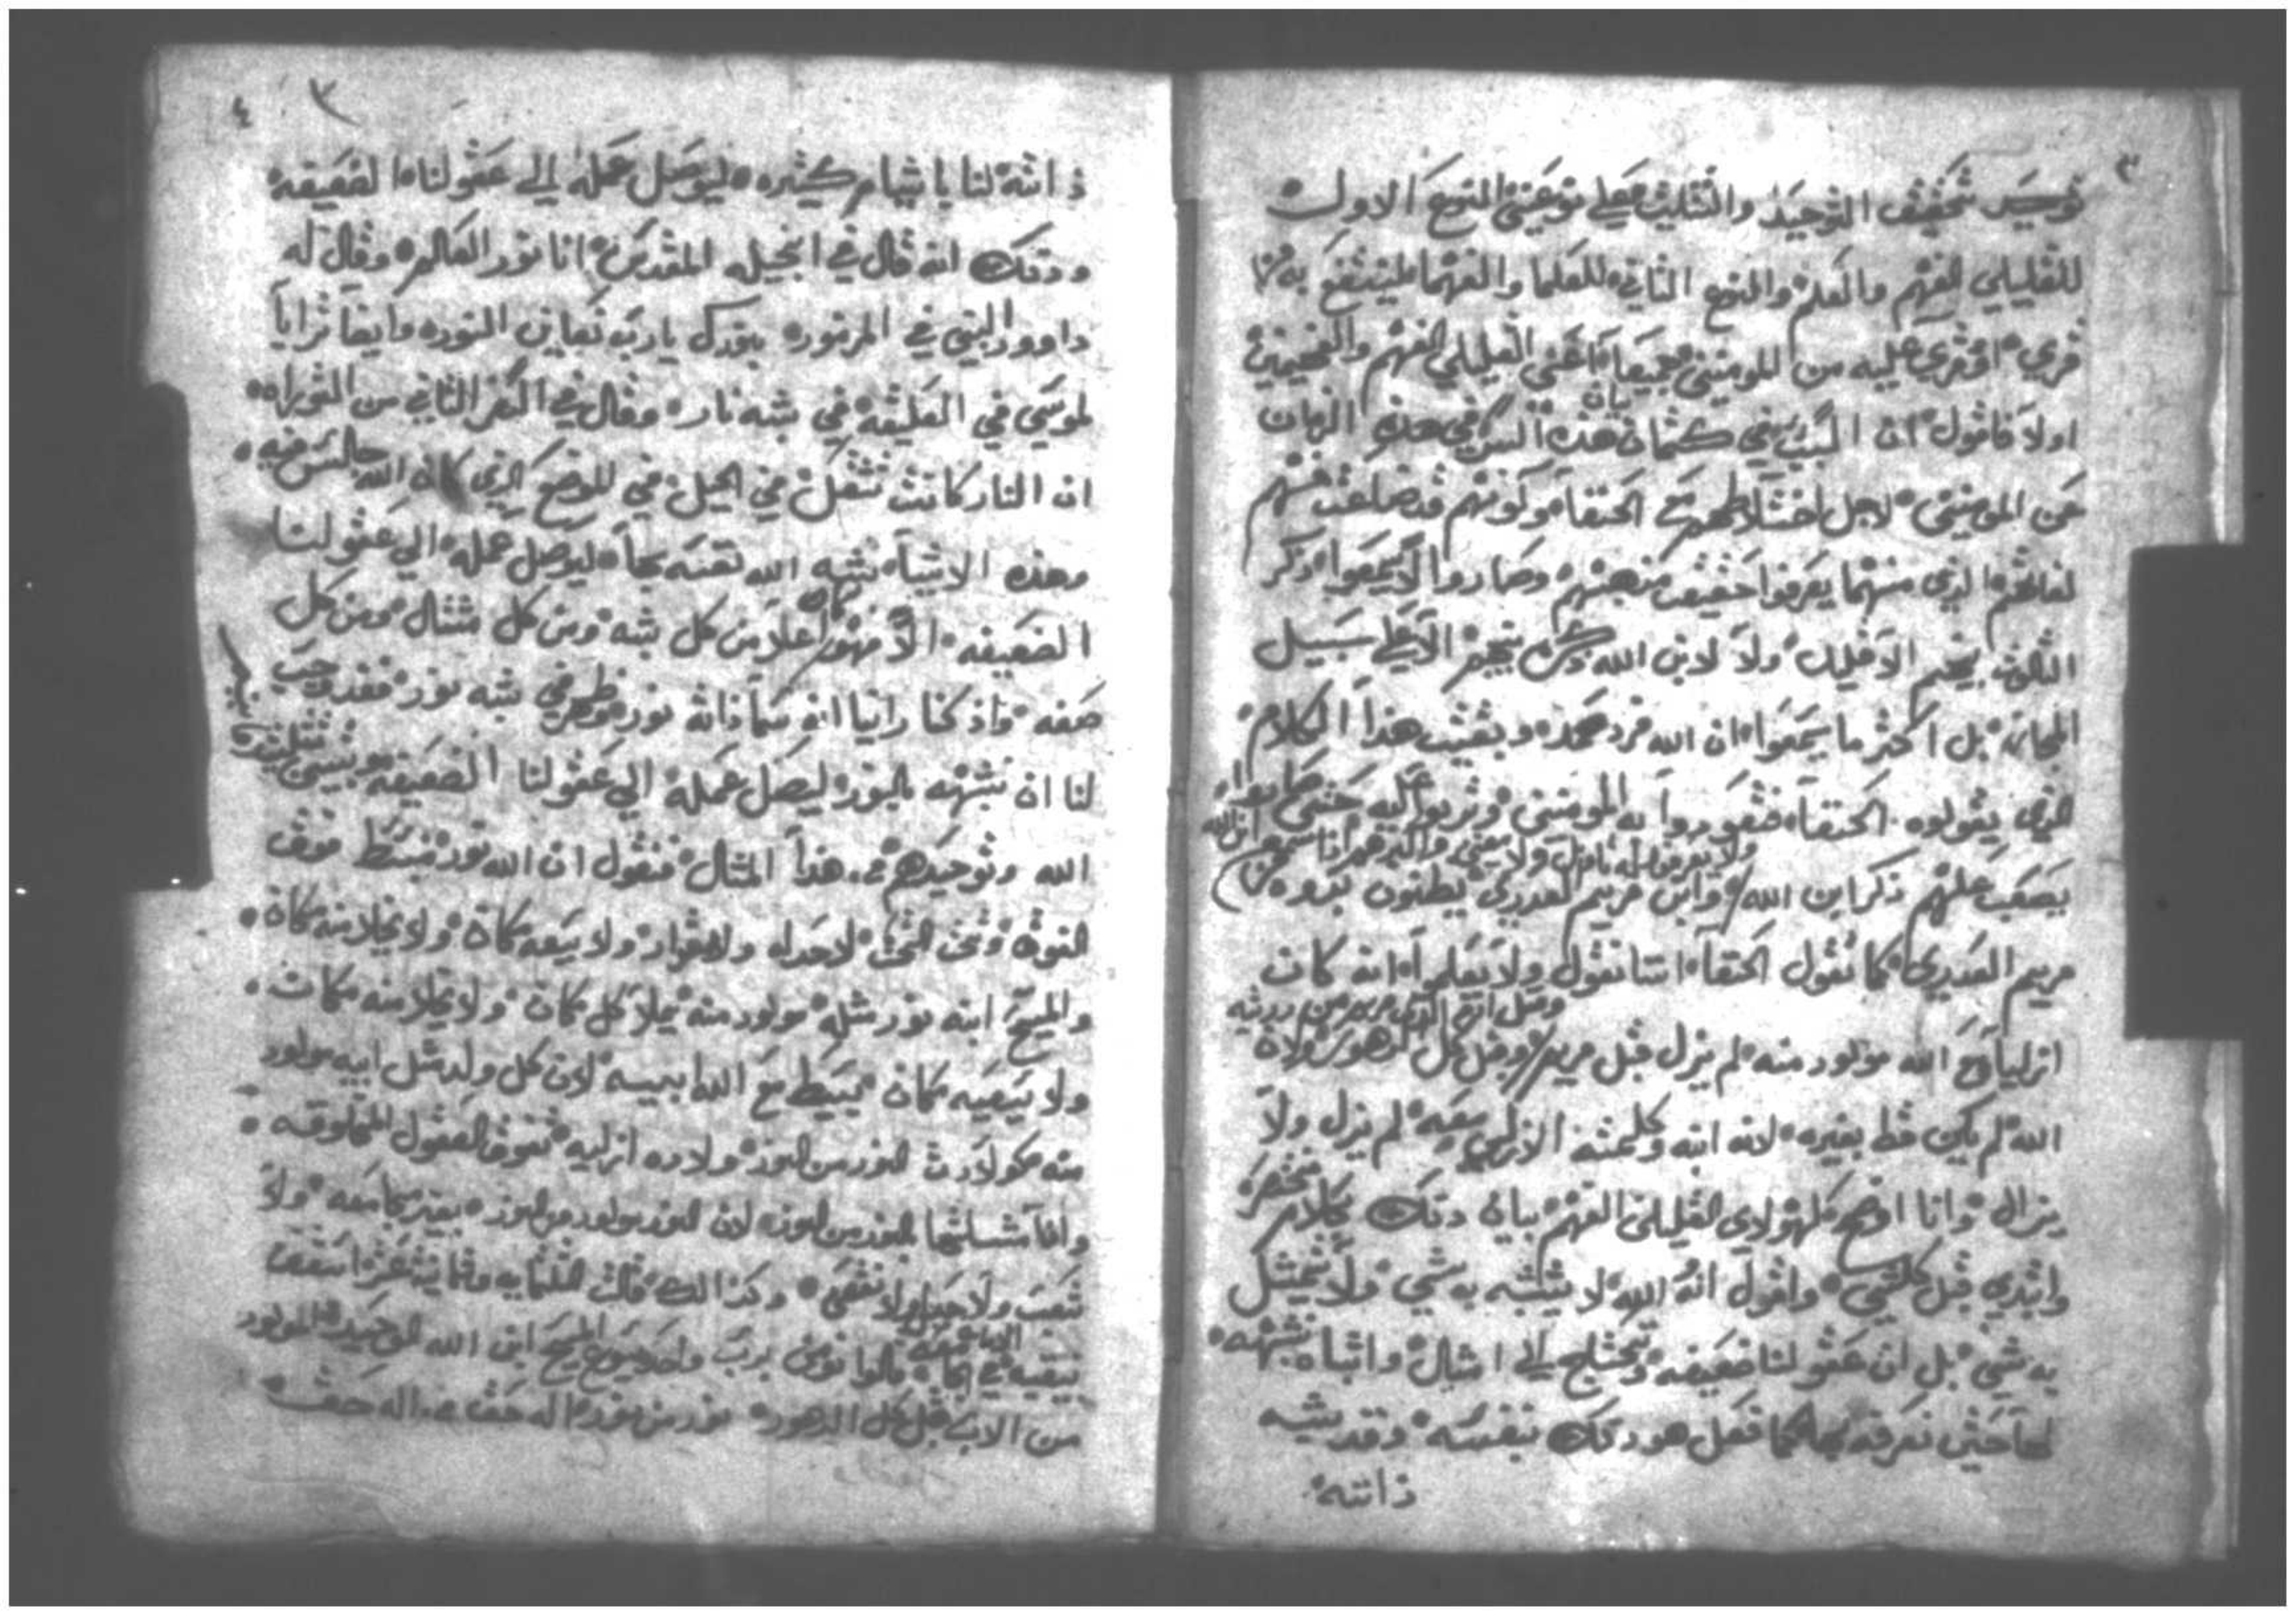 ٣
توحيد تحقيق التوحيد والتثليث على نوعين النوع الاول
للقليلي الفهم والعلم والنوع الثاني للعلما والفهما لينتفع به من
قري او قري عليه من المومنين جميعا اعني القليلي الفهم والفهيمين
اولا فاقول ان السبب في كتمان هذه السر في هذه الزمان
بيان
عن المومنين لاجل اختلاطهم مع الحنفا وكونهم قد ضاعت منهم
لغاتهم الذي منهما يعرفوا حقيقت مذهبهم وصاروا لا يسمعوا ذكر
الثلوث بينهم الا قليل ولا لابن الله ذكر بينهم الا على سبيل
المجاز بل اكثر ما يسمعوا ان الله فرد صمد وبقيت هذا الكلام
الذي يقولوه الحنفا فتعودوا به المومنين وتربوا عليه حتى صاروا
ولا يعرفوا له تاويل ولا معنى واكثرهم اذا سمعوا ان الله
يصعب عليهم ذكر ابن الله وابن مريم العدري يظنون بدوه من
مريم العدري كما تقول الحنفا اننا نقول ولا يعلموا انه كان
وقبل ان
ازليا مع الله مولود منه لم يزل قبل مريم وقبل كل الدهور ولان
الله لم يكن قط بغيره لانه ابنه وكلمته الازلي معه لم يزل ولا
يزال وانا اوضح لهولاي القليلين الفهم بيان دلك بكلام مختصر
وابتدي قبل كلشي واقول ان الله لا يشبه به شي ولا يمثل
به شي بل ان عقولنا ضعيفه وتحتاج الى امثال واشباه نشبهه
لها حتى نعرفه بها كما فعل هو دلك بنفسه وقد شبه
ذاته
٣ ٤
ذاته لنا باشيا كثيره ليوصل عمله الي عقولنا الضعيفه
ودلك انه قال في انجيله المقدس انا نور العالم وقال له
داوود النبي في المزمور بنورك يارب نعاين النور وايضا ترايا
لموسي في العليقه في شبه نار وقال في السفر الثاني من التوراه
ان النار كانت تشعل في الجبل في الموضع الذي كان الله جالس فيه
وهذه الاشيا شبه الله نفسه بها ليوصل عمله الي عقولنا
الضعيفه الا فهو اعلا من كل شبه ومن كل مثال ومن كل
كان
صفه واذ كنا راينا انه سما ذاته نور وظهر في شبه نور فقد يجب
لنا ان نشبهه بالنور ليصل عمله الي عقولنا الضعيفه ونبين تثليث
الله وتوحيدهم هذا المثال فنقول ان الله نور منبسط فوق
الفوق وتحت التحت لا حد له ولا مقدار ولا يسعه مكان ولا يخلا منه مكان
والمسيح ابنه نور مثله مولود منه يملا كل مكان ولا يخلا منه مكان
ولا يسعه مكان منبسط مع الله ابيه لان كل ولد مثل ابيه مولود
منه كولادت النور من النور ولاده ازليه تفوق العقول المخلوقه
وانما مثلتها بالنور من النور لان النور مولود من النور بغير مجامعه ولا
تعب ولا حبل ولا نقص وكذالك قالت الثلثمايه وثمانيه عشر اسقف
بنيقيه في الامانه قالوا نومن برب واحد يسوع المسيح ابن الله الوحيد المولود
من الاب قبل كل الدهور نور من نور اله حق من اله حق